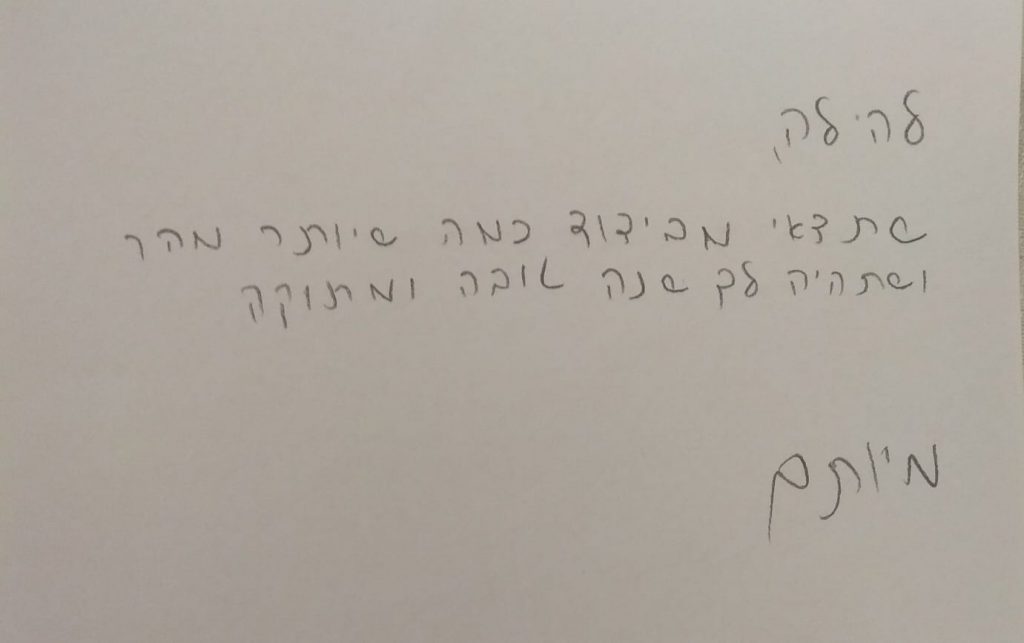 להילה,
שתצאי מבידוד כמה שיותר מהר
ושתהיה לך שנה טובה ומתוקה
מיותם